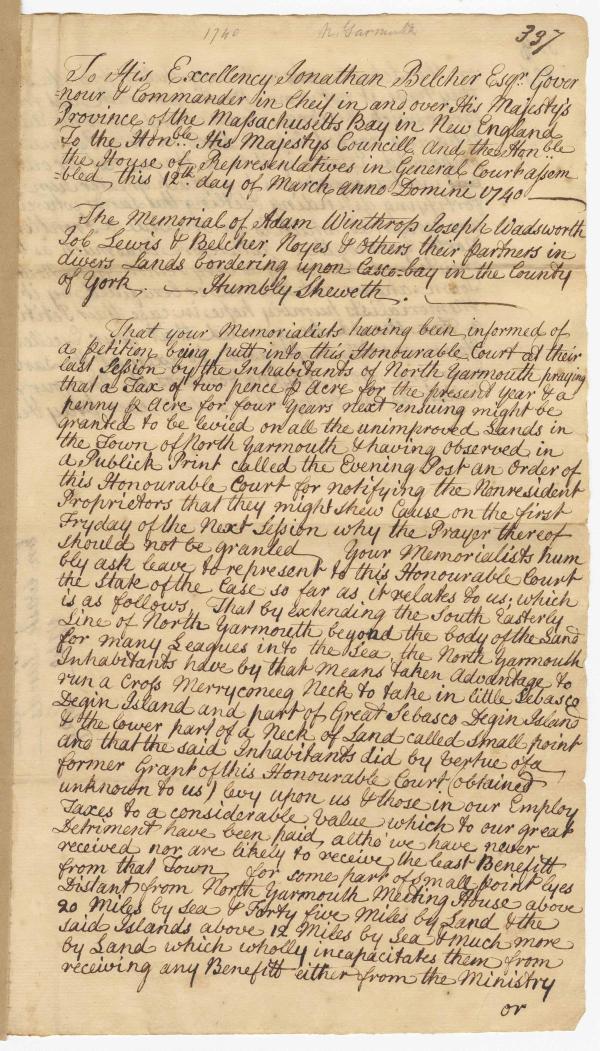 1740 N. Yarmouth 337
To His Excellency Jonathan Belcher Esqr. Gover
=nour & Commander in Cheif in and over His Majestys
Province of the Massachusetts Bay in New England
To the Honble. His Majestys Councill And the Honble
the House of Representatives in General Court assem
=bled this 12th. day of March anno Domini 1740
The Memorial of Adam Winthrop Joseph Wadsworth
Job Lewis & Belcher Noyes & Others their partners in
divers Lands bordering upon Casco-bay in the County
of York. — Humbly Sheweth.
That your Memorialists having been informed of
a petition being putt into this Honourable Court at their
last Session by the Inhabitants of North Yarmouth praying
that a Tax of two pence ⅌ Acre for the present year & a
penny ⅌ Acre for four Years next ensuing might be
granted to be levied on all the unimproved Lands in
the Town of North Yarmouth & having observed in
a Publick Print called the Evening Post an Order of
this Honourable Court for notifying the Nonresident
Proprietors that they might shew Cause on the first
Fryday of the Next Session why the Prayer thereof
should not be granted Your Memorialists hum
bly ask leave to represent to this Honourable Court
the State of the Case so far as it relates to us; which
is as follows. That by extending the South Easterly
Line of North Yarmouth beyond the body of the Land
for many Leagues into the Sea, the North Yarmouth
Inhabitants have by that means taken Advantage to
run a Cross Merryconeeg Neck to take in little Sebasco
Degin Island and part of Great Sebasco Degin Island
& the lower part of a Neck of Land called Small point
And that the said Inhabitants did by Vertue of a
former Grant of this Honourable Court (obtained
unknown to us) levy upon us & those in our Employ
Taxes to a considerable Value which to our great
Detriment have been paid, altho' we have never
received nor are likely to receive the least Benefitt
from that Town, for some part of Small point lyes
Distant from North Yarmouth Meeting House above
20 Miles by Sea & Forty five Miles by Land & the
said Islands above 12 Miles by Sea & much more
by Land which wholly incapacitates them from
receiving any Benefitt either from the Ministry
or